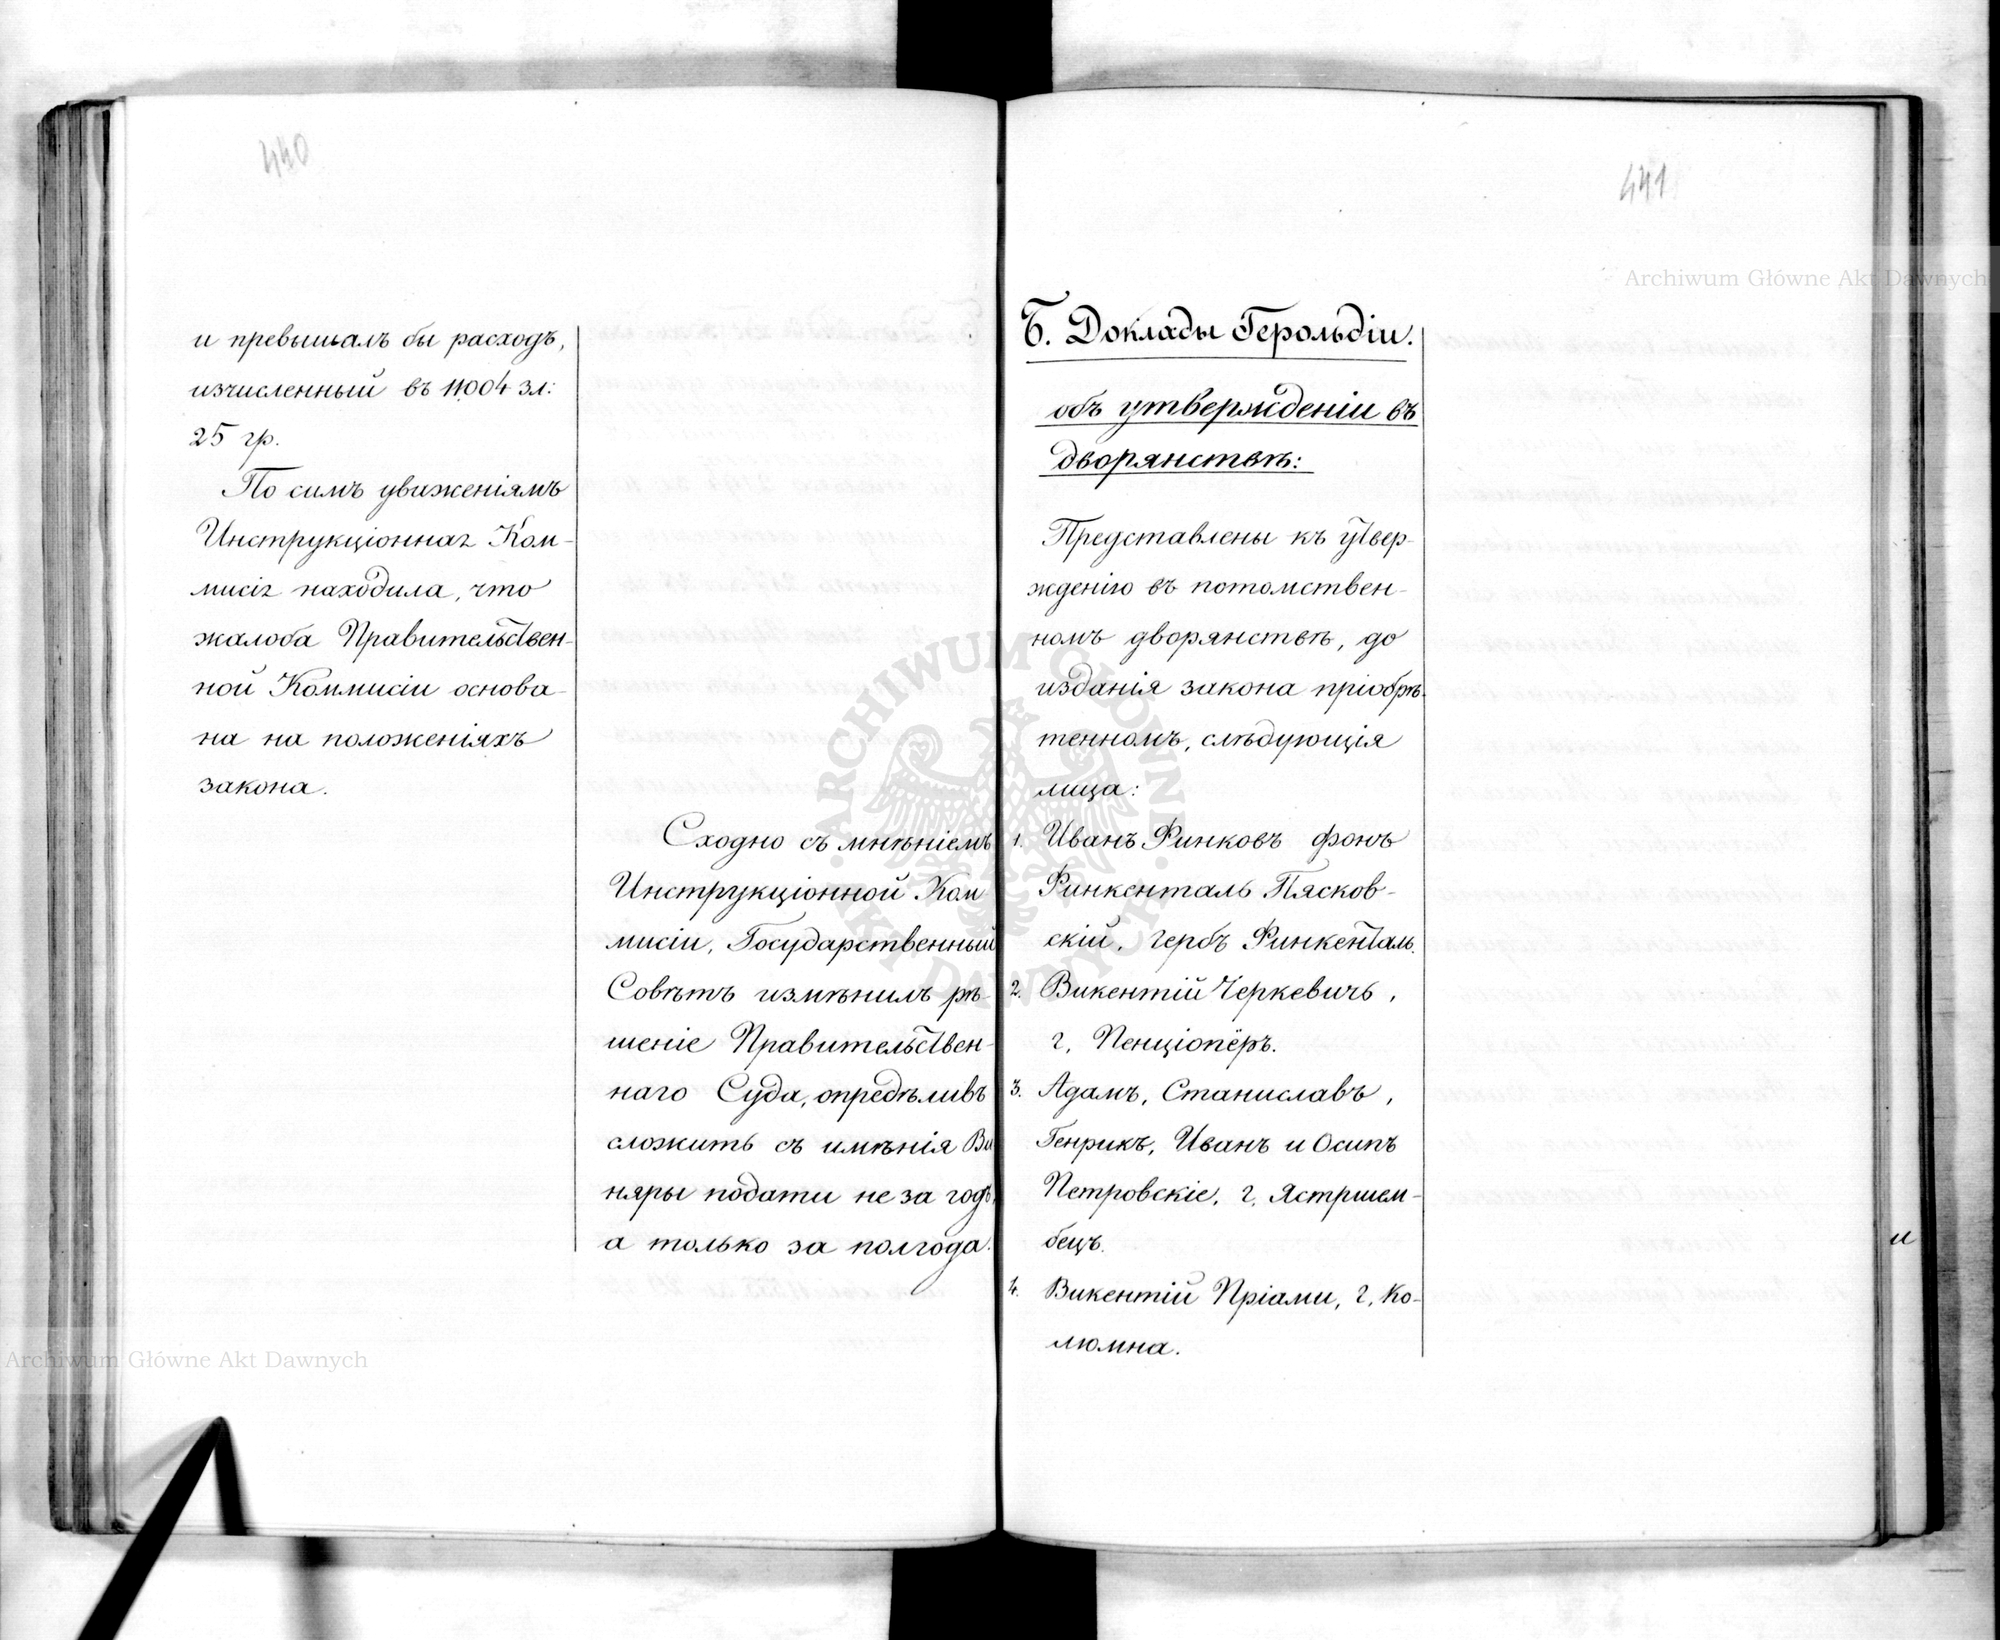 440
и превышалъ бы расходъ,
изчисленный въ 11004 зл:
25 гр.
По симъ уваженіямъ
Инструкціонная Ком-
мисія находила, что
жалоба Правительствен-
ной Коммисіи основа-
на на положеніяхъ
закона.
Сходно съ мнѣніемъ
Инструкціонной Ком
мисіи, Государственный
Совѣтъ измѣнилъ рѣ-
шеніе Правительствен-
наго Суда, опредѣливъ
сложить съ имѣнія Ви
няры подати не за годъ,
а только за полгода.
441
Б. Доклады Герольдіи.
объ утвержденіи въ
дворянствѣ:
Представлены къ утвер-
жденію въ потомствен-
номъ дворянствѣ, до
изданія закона пріобрѣ-
тенномъ, слѣдующія
лица:
1. Иванъ Ринковъ фонъ
Ринкенталь Пясков-
скій, гербъ Ринкенталь.
2. Викентій Черкевичъ,
г, Пенціонёръ.
3. Адамъ, Станиславъ,
Генрикъ, Иванъ и Осипъ
Петровскіе, г, Ястршем-
бецъ.
4. Викентій Пріами, г, Ко-
люмна.
и
Archiwum Główne Akt Dawnych
Archiwum Główne Akt Dawnych
ARCHIWUM GŁÓWNE
AKT DAWNYCH